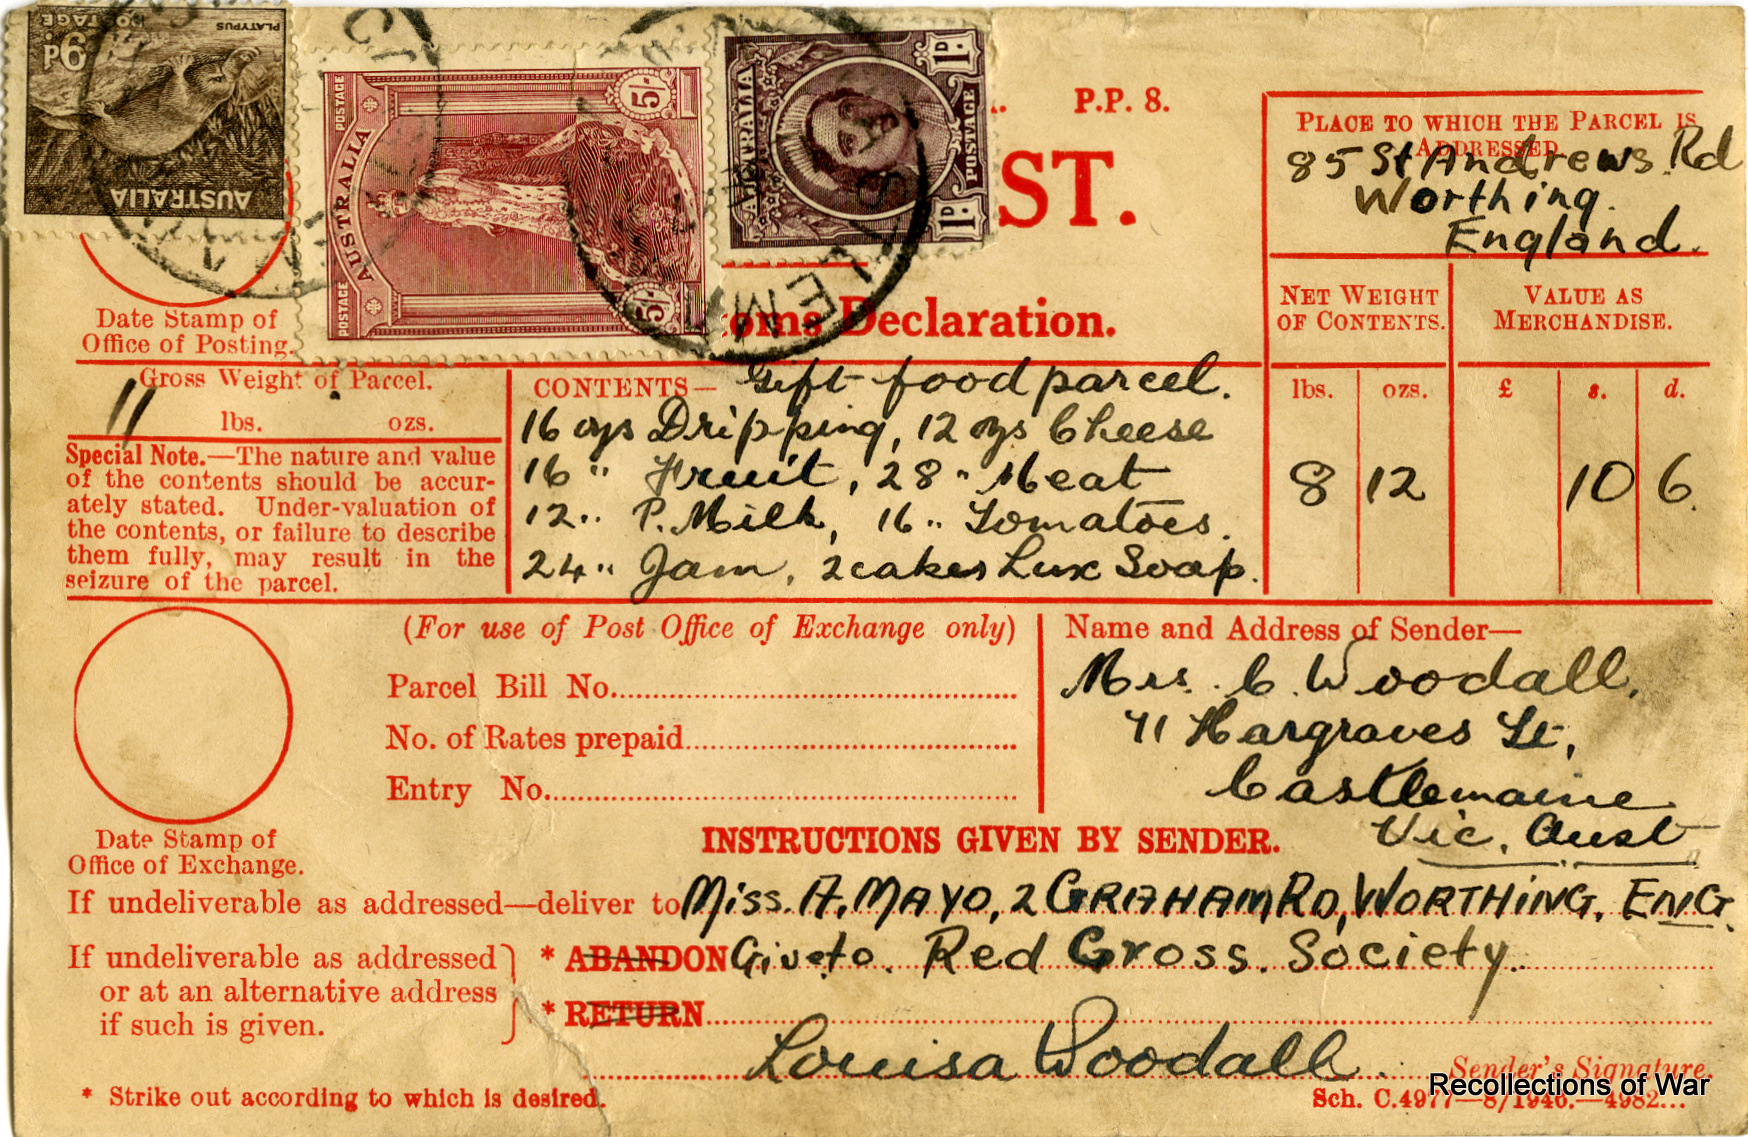 PLATYPUS
POSTAGE
9D
AUSTRALIA
POSTAGE
AUSTRALIA
POSTAGE
5/-
5/-
AUSTRALIA
POSTAGE
1D.
1D.
P.P. 8.
ST.
oms Declaration.
PLACE TO WHICH THE PARCEL IS
ADDRESSED
85 St Andrews Rd
Worthing.
England.
NET WEIGHT
OF CONTENTS.
VALUE AS
MERCHANDISE.
Date Stamp of
Office of Posting.
Gross Weight of Parcel.
11 lbs. ozs.
Special Note.—The nature and value
of the contents should be accur-
ately stated. Under-valuation of
the contents, or failure to describe
them fully, may result in the
seizure of the parcel.
CONTENTS— Gift food parcel.
16 ozs Dripping, 12 ozs Cheese
16 " Fruit, 28 " Meat
12 " P. Milk, 16 " Tomatoes.
24 " Jam, 2 cakes Lux Soap.
lbs. ozs. £ s. d.
8 12 10 6.
(For use of Post Office of Exchange only)
Parcel Bill No.
No. of Rates prepaid
Entry No.
Name and Address of Sender—
Mrs. C. Woodall,
71 Hargraves St,
Castlemaine
Vic. Aust
Date Stamp of
Office of Exchange.
INSTRUCTIONS GIVEN BY SENDER.
If undeliverable as addressed—deliver to Miss. A. MAYO, 2 GRAHAM RD, WORTHING, ENG.
If undeliverable as addressed
or at an alternative address
if such is given.
* ABANDON Give to. Red Cross. Society.
* RETURN
Louisa Woodall.
Sender's Signature.
* Strike out according to which is desired.
Sch. C.4977—8/1946.—4982...
Recollections of War